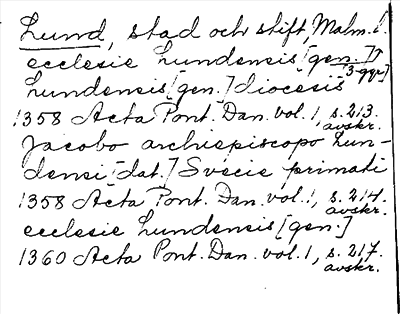 Lund, stad och stift, Malm. l.
ecclesie Lundensis [gen.]
[3 ggr]
Lundensis [gen.] diocesis
1358 Acta Pont. Dan. vol. 1, s. 213.
avskr.
Jacobo archiepiscopo Lun-
densi [dat.] Svecie primati
1358 Acta Pont. Dan. vol. 1, s. 214.
avskr.
ecclesie Lundensis [gen.]
1360 Acta Pont. Dan. vol. 1, s. 217.
avskr.